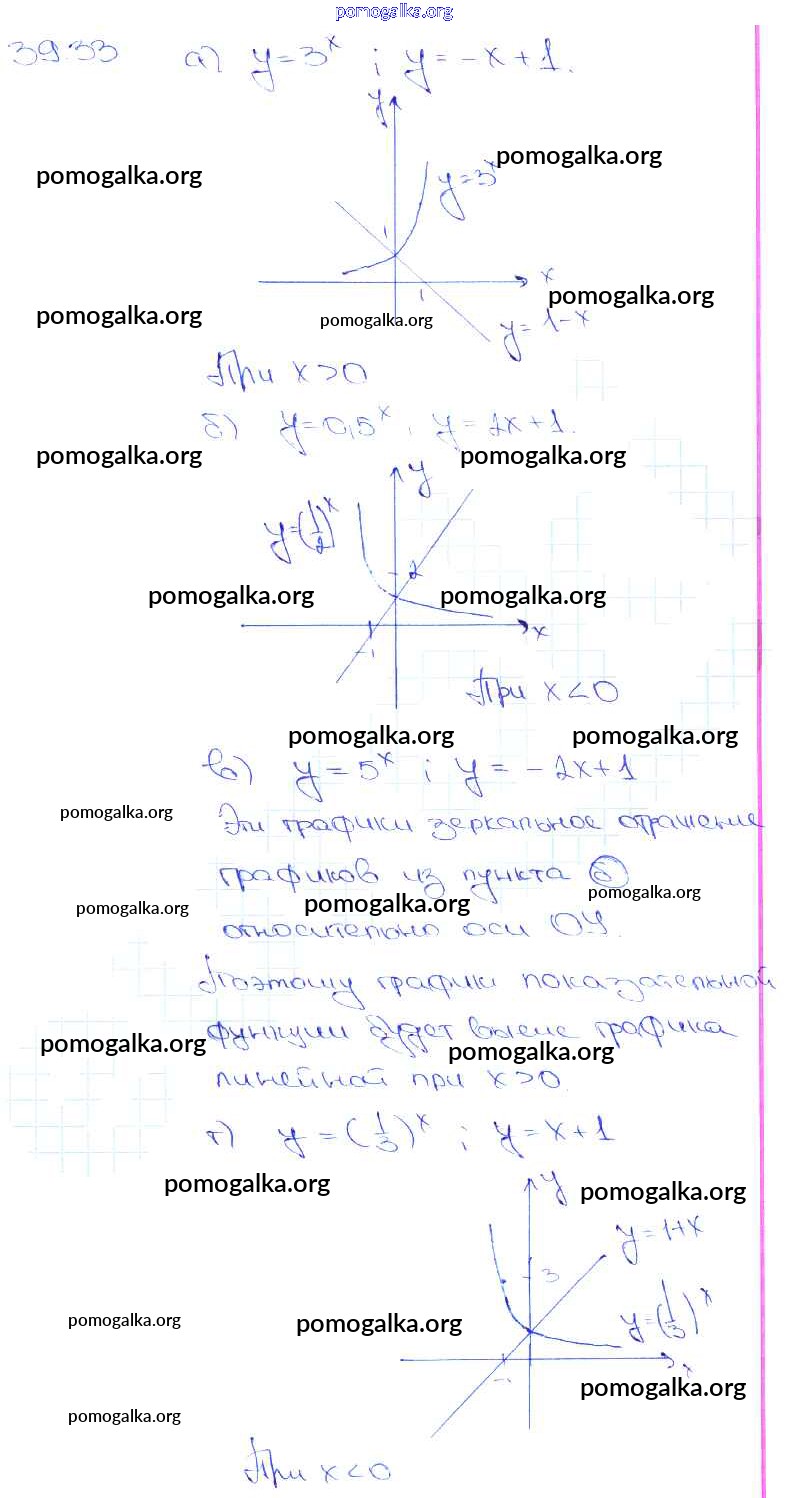 pomogalka.org
39.33 а) y=3ˣ ; y=-x+1.
y
pomogalka.org
pomogalka.org
y=3ˣ
1
x
1
pomogalka.org
pomogalka.org
pomogalka.org
y=1-x
При x>0
б) y=0,5ˣ, y=2x+1.
pomogalka.org
pomogalka.org
y
y=(1/2)ˣ
2
pomogalka.org
pomogalka.org
x
-1
При x<0
pomogalka.org
pomogalka.org
в) y=5ˣ ; y=-2x+1
pomogalka.org
Эти графики зеркальное отражение
графиков из пункта б)
pomogalka.org
pomogalka.org
pomogalka.org
относительно оси OY.
Поэтому графики показательной
функции будет выше графика
pomogalka.org
pomogalka.org
линейной при x>0.
г) y=(1/3)ˣ ; y=x+1
pomogalka.org
y
pomogalka.org
y=1+x
3
pomogalka.org
pomogalka.org
y=(1/3)ˣ
x
-1
pomogalka.org
pomogalka.org
При x<0